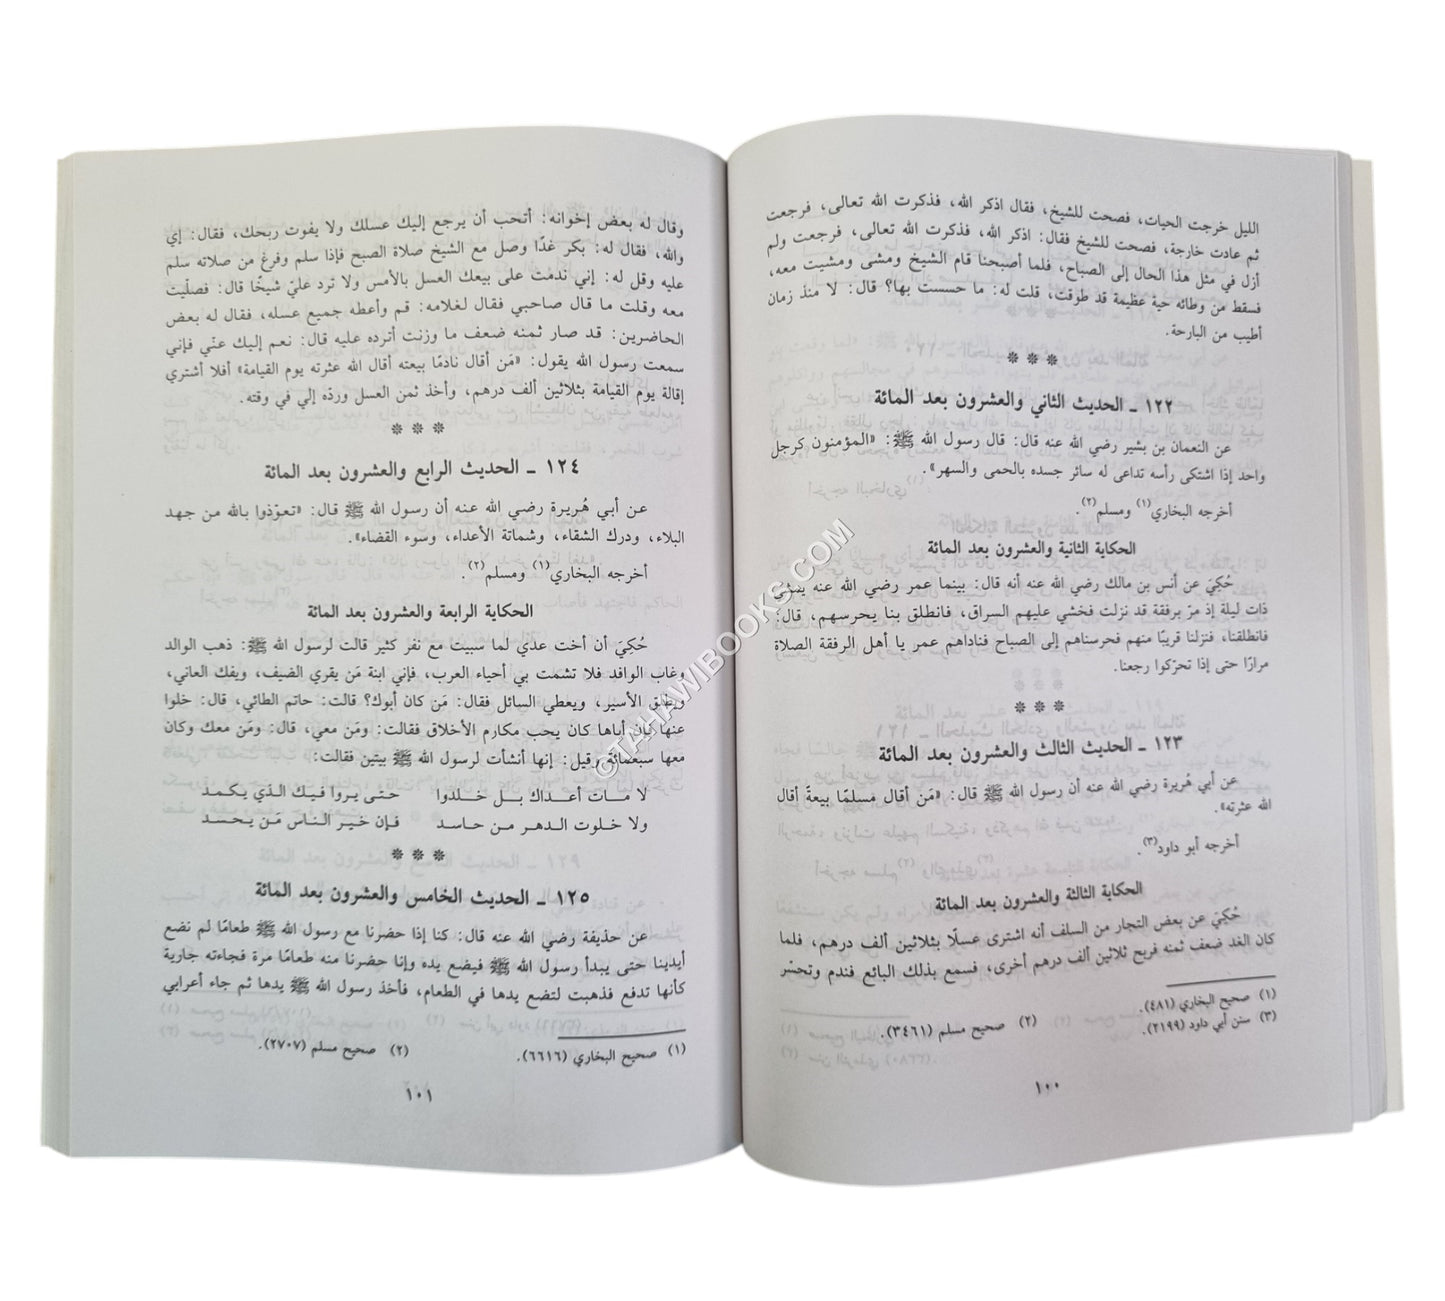 الليل خرجت الحيات، فصحت للشيخ، فقال اذكر الله، فذكرت الله تعالى، فرجعت
ثم عادت خارجة، فصحت للشيخ فقال: اذكر الله، فذكرت الله تعالى، فرجعت ولم
أزل في مثل هذا الحال إلى الصباح، فلما أصبحنا قام الشيخ ومشى ومشيت معه،
فسقط من وطائه حية عظيمة قد طوقت، قلت له: ما حسست بها؟ قال: لا منذ زمان
أطيب من البارحة.
❊ ❊ ❊
١٢٢ ـ الحديث الثاني والعشرون بعد المائة
عن النعمان بن بشير رضي الله عنه قال: قال رسول الله ﷺ: «المؤمنون كرجل
واحد إذا اشتكى رأسه تداعى له سائر جسده بالحمى والسهر».
أخرجه البخاري(١) ومسلم(٢).
الحكاية الثانية والعشرون بعد المائة
حُكِيَ عن أنس بن مالك رضي الله عنه أنه قال: بينما عمر رضي الله عنه يمشي
ذات ليلة إذ مرّ برفقة قد نزلت فخشي عليهم السراق، فانطلق بنا يحرسهم، قال:
فانطلقنا، فنزلنا قريبًا منهم فحرسناهم إلى الصباح فناداهم عمر يا أهل الرفقة الصلاة
مرارًا حتى إذا تحرّكوا رجعنا.
❊ ❊ ❊
١٢٣ ـ الحديث الثالث والعشرون بعد المائة
عن أبي هُريرة رضي الله عنه أن رسول الله ﷺ قال: «مَن أقال مسلمًا بيعةً أقال
الله عثرته».
أخرجه أبو داود(٣).
الحكاية الثالثة والعشرون بعد المائة
حُكِيَ عن بعض التجار من السلف أنه اشترى عسلًا بثلاثين ألف درهم، فلما
كان الغد ضعف ثمنه فربح ثلاثين ألف درهم أخرى، فسمع بذلك البائع فندم وتحسّر
(١) صحيح البخاري (٤٨١).
(٢) صحيح مسلم (٣٤٦١).
(٣) سنن أبي داود (٢١٩٩).
١٠٠
وقال له بعض إخوانه: أتحب أن يرجع إليك عسلك ولا يفوت ربحك، فقال: إي
والله، فقال له: بكر غدًا وصل مع الشيخ صلاة الصبح فإذا سلم وفرغ من صلاته سلم
عليه وقل له: إني ندمت على بيعك العسل بالأمس ولا ترد عليّ شيخًا قال: فصلّيت
معه وقلت ما قال صاحبي فقال لغلامه: قم وأعطه جميع عسله، فقال له بعض
الحاضرين: قد صار ثمنه ضعف ما وزنت أترده عليه قال: نعم إليك عنّي فإني
سمعت رسول الله يقول: «مَن أقال نادمًا بيعته أقال الله عثرته يوم القيامة» أفلا أشتري
إقالة يوم القيامة بثلاثين ألف درهم، وأخذ ثمن العسل وردّه إلي في وقته.
❊ ❊ ❊
١٢٤ ـ الحديث الرابع والعشرون بعد المائة
عن أبي هُريرة رضي الله عنه أن رسول الله ﷺ قال: «تعوّذوا بالله من جهد
البلاء، ودرك الشقاء، وشماتة الأعداء، وسوء القضاء».
أخرجه البخاري(١) ومسلم(٢).
الحكاية الرابعة والعشرون بعد المائة
حُكِيَ أن أخت عدي لما سبيت مع نفر كثير قالت لرسول الله ﷺ: ذهب الوالد
وغاب الوافد فلا تشمت بي أحياء العرب، فإني ابنة مَن يقري الضيف، ويفك العاني،
ويطلق الأسير، ويعطي السائل فقال: مَن كان أبوك؟ قالت: حاتم الطائي، قال: خلوا
عنها فإن أباها كان يحب مكارم الأخلاق فقالت: ومَن معي، قال: ومَن معك وكان
معها سبعمائة وقيل: إنها أنشأت لرسول الله ﷺ بيتين فقالت:
لا مات أعداك بل خلدوا حتى يروا فيك الذي يكمد
ولا خلوت الدهر من حاسد فإن خير الناس مَن يحسد
❊ ❊ ❊
١٢٥ ـ الحديث الخامس والعشرون بعد المائة
عن حذيفة رضي الله عنه قال: كنا إذا حضرنا مع رسول الله ﷺ طعامًا لم نضع
أيدينا حتى يبدأ رسول الله ﷺ فيضع يده وإنا حضرنا منه طعامًا مرة فجاءته جارية
كأنها تدفع فذهبت لتضع يدها في الطعام، فأخذ رسول الله ﷺ يدها ثم جاء أعرابي
(١) صحيح البخاري (٦٦١٦).
(٢) صحيح مسلم (٢٧٠٧).
١٠١
© TAHAWIBOOKS.COM